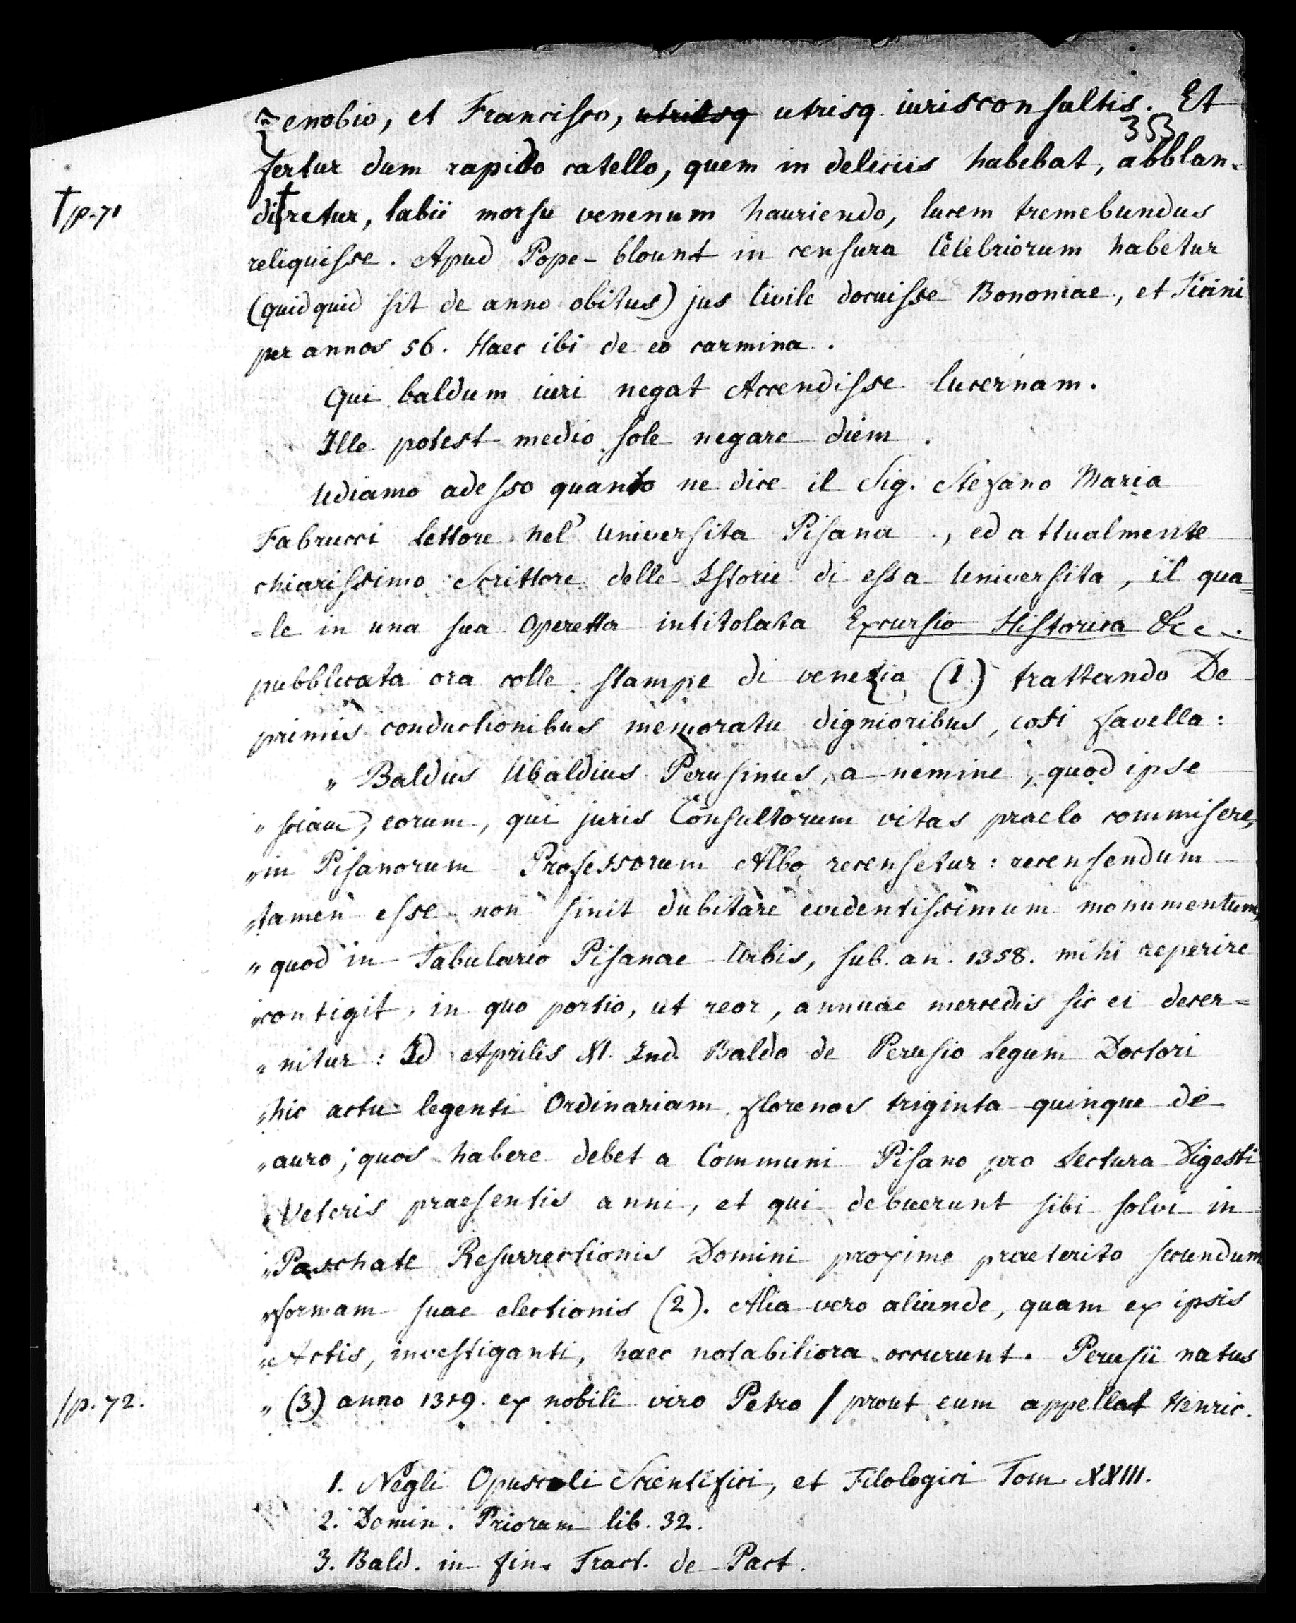 Zenobio, et Francisco, utriusq utrisq. iurisconsultis. Et
353
fertur dum rapido catello, quem in deliciis habebat, abblan-
†/p. 71
di†retur, labii morsu venenum hauriendo, lucem tremebundus
reliquisse. Apud Pope-blount in censura Celebriorum habetur
(quidquid sit de anno obitus) jus Civile docuisse Bononiae, et Ticini
per annos 56. Haec ibi de eo carmina.
Qui baldum iuri negat Accendisse lucernam.
Ille potest medio sole negare diem.
Udiamo adesso quanto ne dice il Sig. Stefano Maria
Fabrucci lettore nel' Universita Pisana, ed attualmente
chiarissimo Scrittore delle Istorie di essa Universita, il qua=
-le in una sua Operetta intitolata Excursio Historica &c.
pubblicata ora colle stampe di venezia (1.) trattando De
primis conductionibus memoratu dignioribus, cosi favella:
" Baldus Ubaldius Perusinus, a nemine, quod ipse
" sciam, eorum, qui juris Consultorum vitas praelo commisere,
" in Pisanorum Professorum Albo recensetur: recensendum
" tamen esse non sinit dubitare evidentissimum monumentum,
" quod in Tabulario Pisanae Urbis, sub. an. 1358. mihi reperire
" contigit, in quo portio, ut reor, annuae mercedis sic ei decer=
" nitur: Id. Aprilis XI. Ind. Baldo de Perusio Legum Doctori
" hic actu legenti Ordinariam florenos triginta quinque de
" auro; quos habere debet a Communi Pisano pro Lectura Digesti
" Veteris praesentis anni, et qui debuerunt sibi solvi in
" Paschate Resurrectionis Domini proxime praeterito secundum
" formam suae electionis (2). Alia vero aliunde, quam ex ipsis
" Actis, investiganti, haec notabiliora occurunt. Perusii natus
/p. 72.
" (3.) anno 1319. ex nobili viro Petro / prout eum appellat Henric.
1. Negli Opuscoli Scientifici, et Filologici Tom. XXIII.
2. Domin. Priorum lib. 32.
3. Bald. in fin. Tract. de Pact.